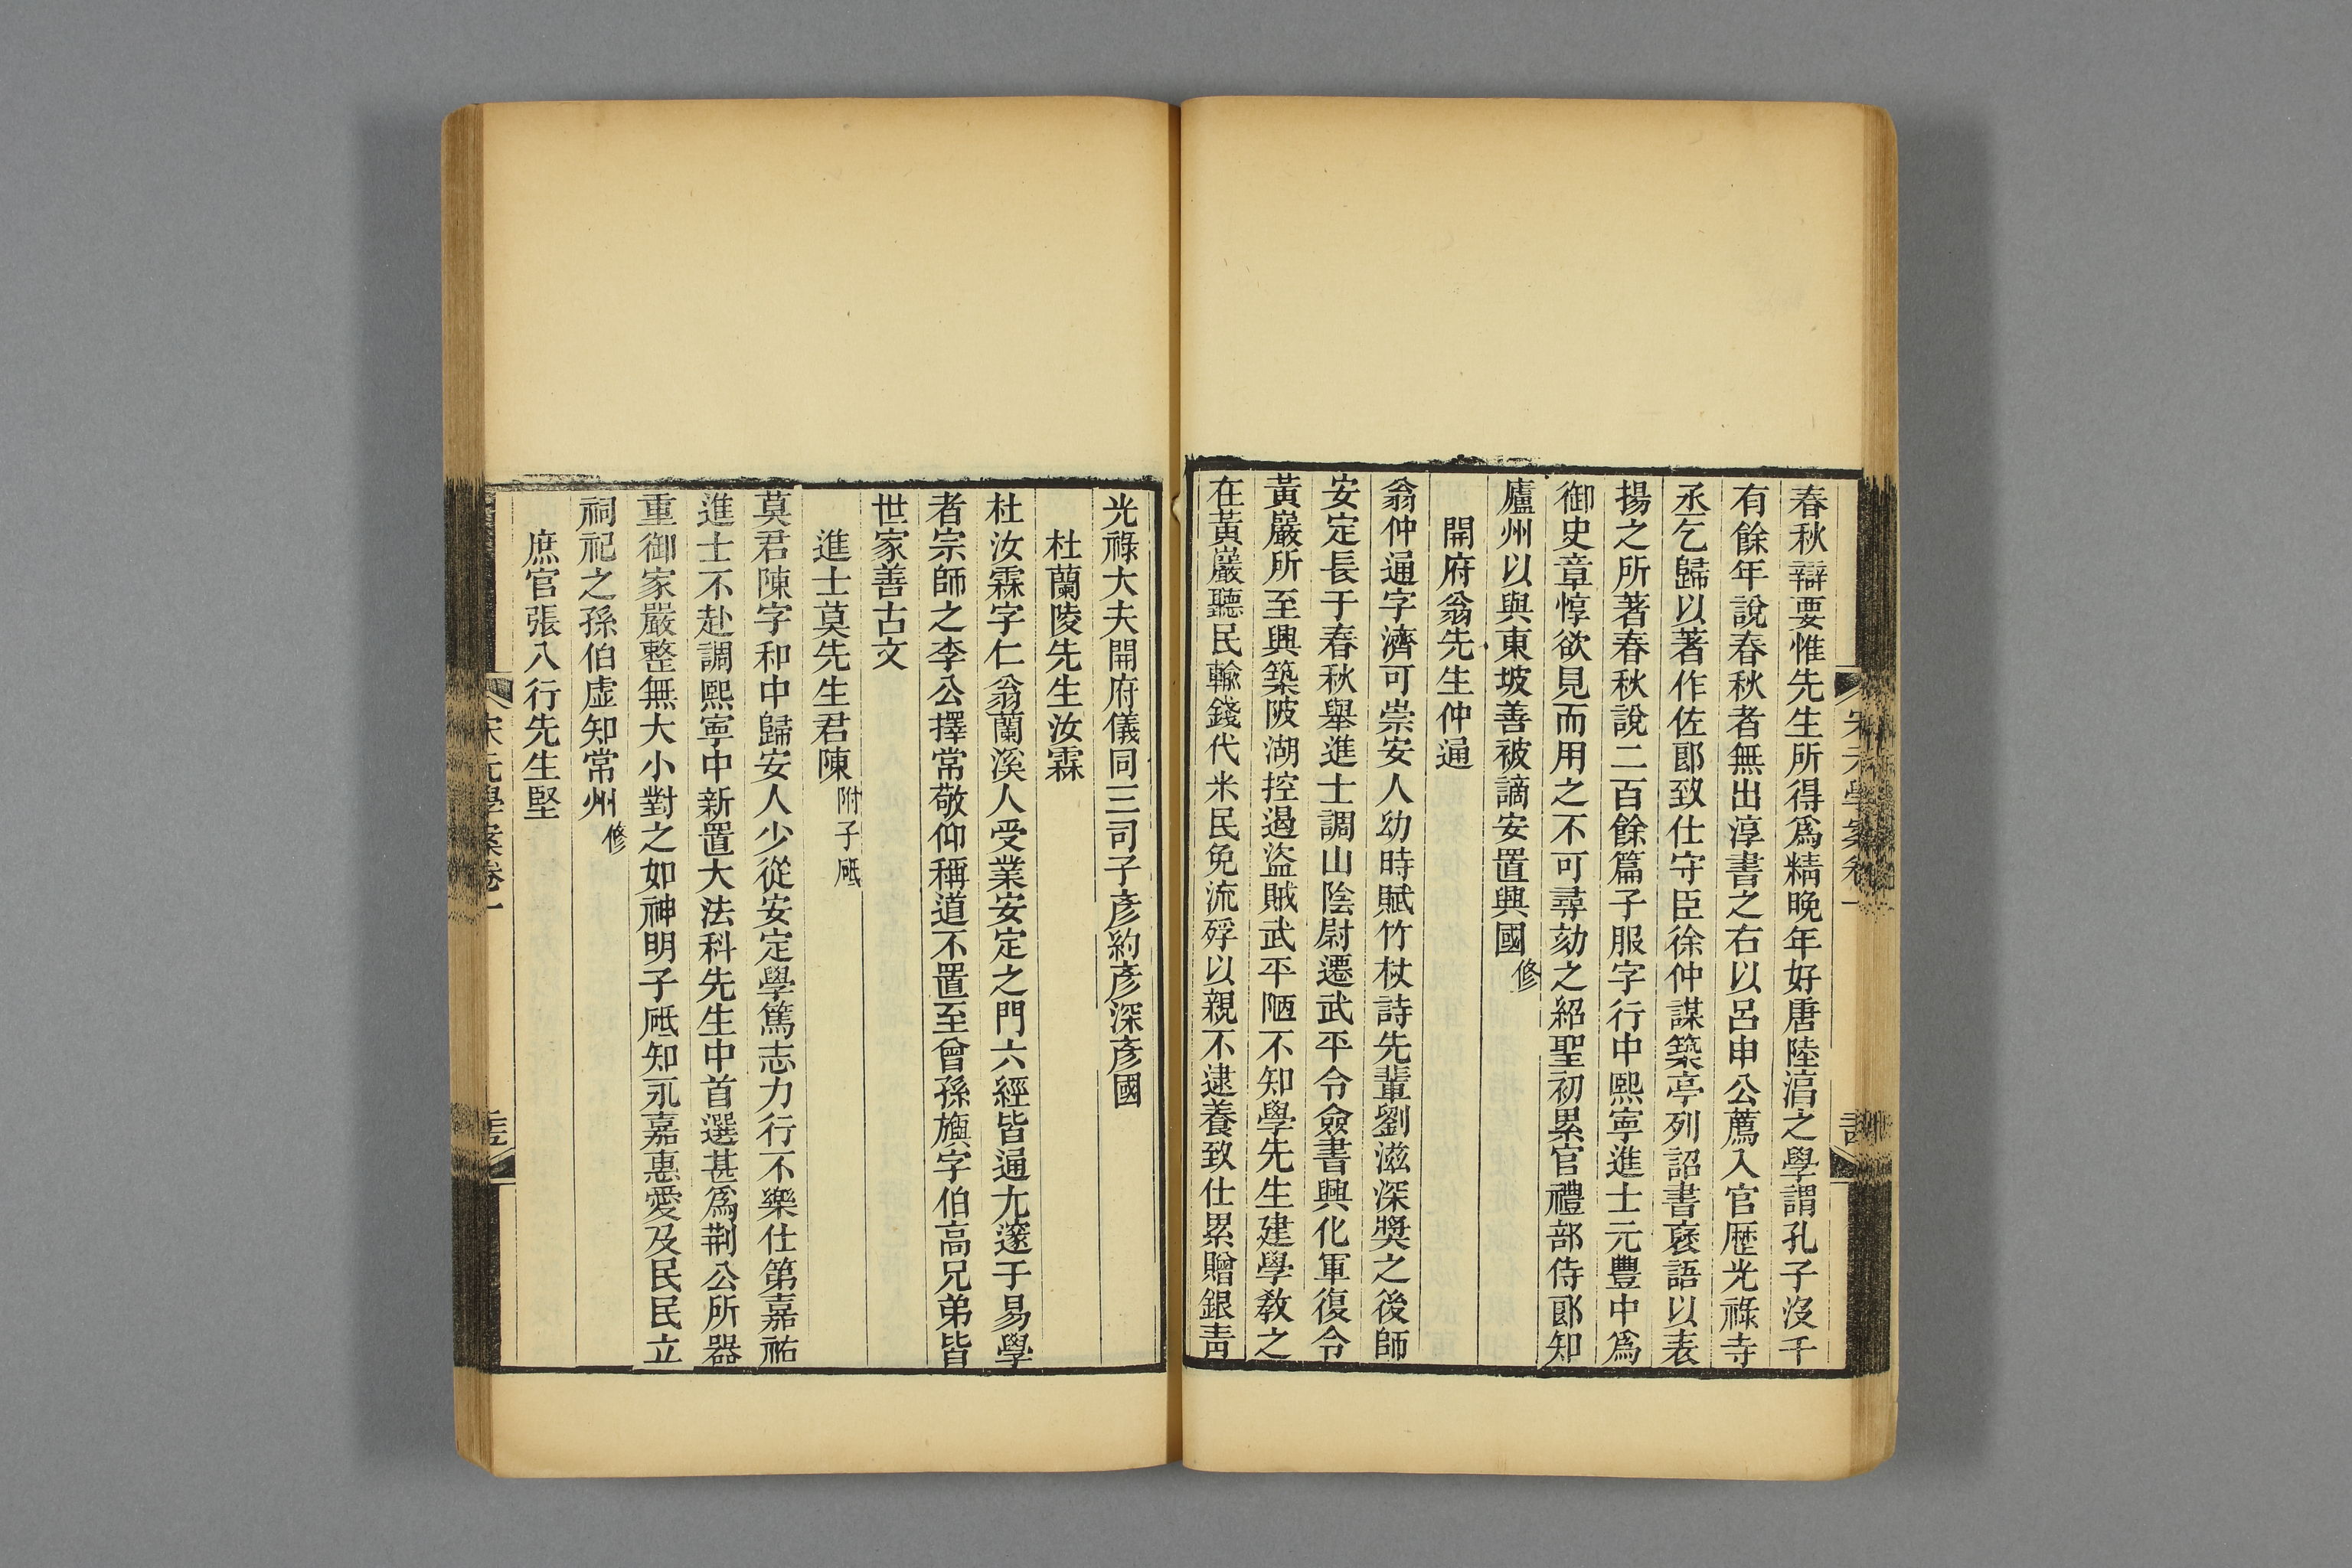 春秋辯要惟先生所得爲精晚年好唐陸淳之學謂孔子沒千
有餘年說春秋者無出淳書之右以呂申公薦入官歷光祿寺
丞乞歸以著作佐郎致仕守臣徐仲謀築亭列詔書襃語以表
揚之所著春秋說二百餘篇子服字行中熙寧進士元豐中爲
御史章惇欲見而用之不可尋劾之紹聖初累官禮部侍郎知
廬州以與東坡善被謫安置興國修
開府翁先生仲通
翁仲通字濟可崇安人幼時賦竹杖詩先輩劉滋深獎之後師
安定長于春秋舉進士調山陰尉遷武平令僉書興化軍復令
黃巖所至興築陂湖控遏盜賊武平陋不知學先生建學敎之
在黃巖聽民輸錢代米民免流殍以親不逮養致仕累贈銀青
光祿大夫開府儀同三司子彥約彥深彥國
杜蘭陵先生汝霖
杜汝霖字仁翁蘭溪人受業安定之門六經皆通尤邃于易學
者宗師之李公擇常敬仰稱道不置至曾孫旟字伯高兄弟皆
世家善古文
進士莫先生君陳附子砥
莫君陳字和中歸安人少從安定學篤志力行不樂仕第嘉祐
進士不赴調熙寧中新置大法科先生中首選甚爲荆公所器
重御家嚴整無大小對之如神明子砥知永嘉惠愛及民民立
祠祀之孫伯虛知常州修
庶官張八行先生堅
宋元學案卷一